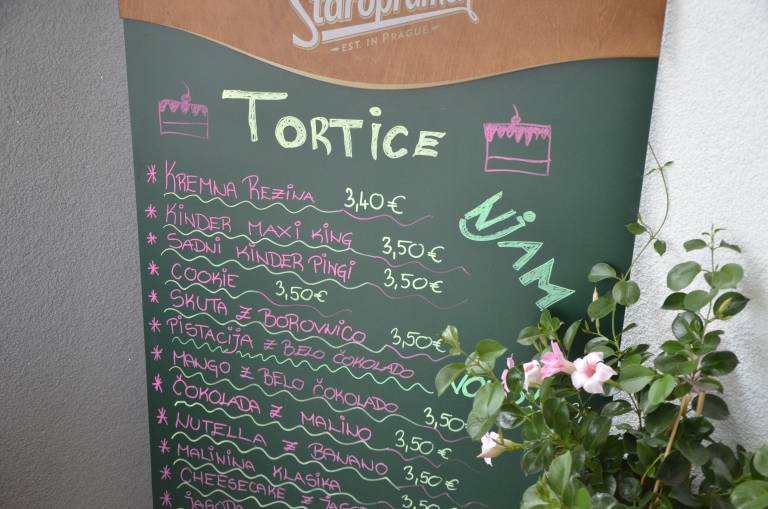 Staropramen
EST. IN PRAGUE
TORTICE
NJAM
* KREMNA REZINA 3,40€
* KINDER MAXI KING 3,50€
* SADNI KINDER PINGI 3,50€
* COOKIE 3,50€
* SKUTA Z BOROVNICO 3,50€
* PISTACIJA Z BELO ČOKOLADO
* MANGO Z BELO ČOKOLADO 3,50
* ČOKOLADA Z MALINO 3,50€
* NUTELLA Z BANANO 3,50€
* MALININA KLASIKA 3,50€
* CHEESECAKE Z
* JAGODA